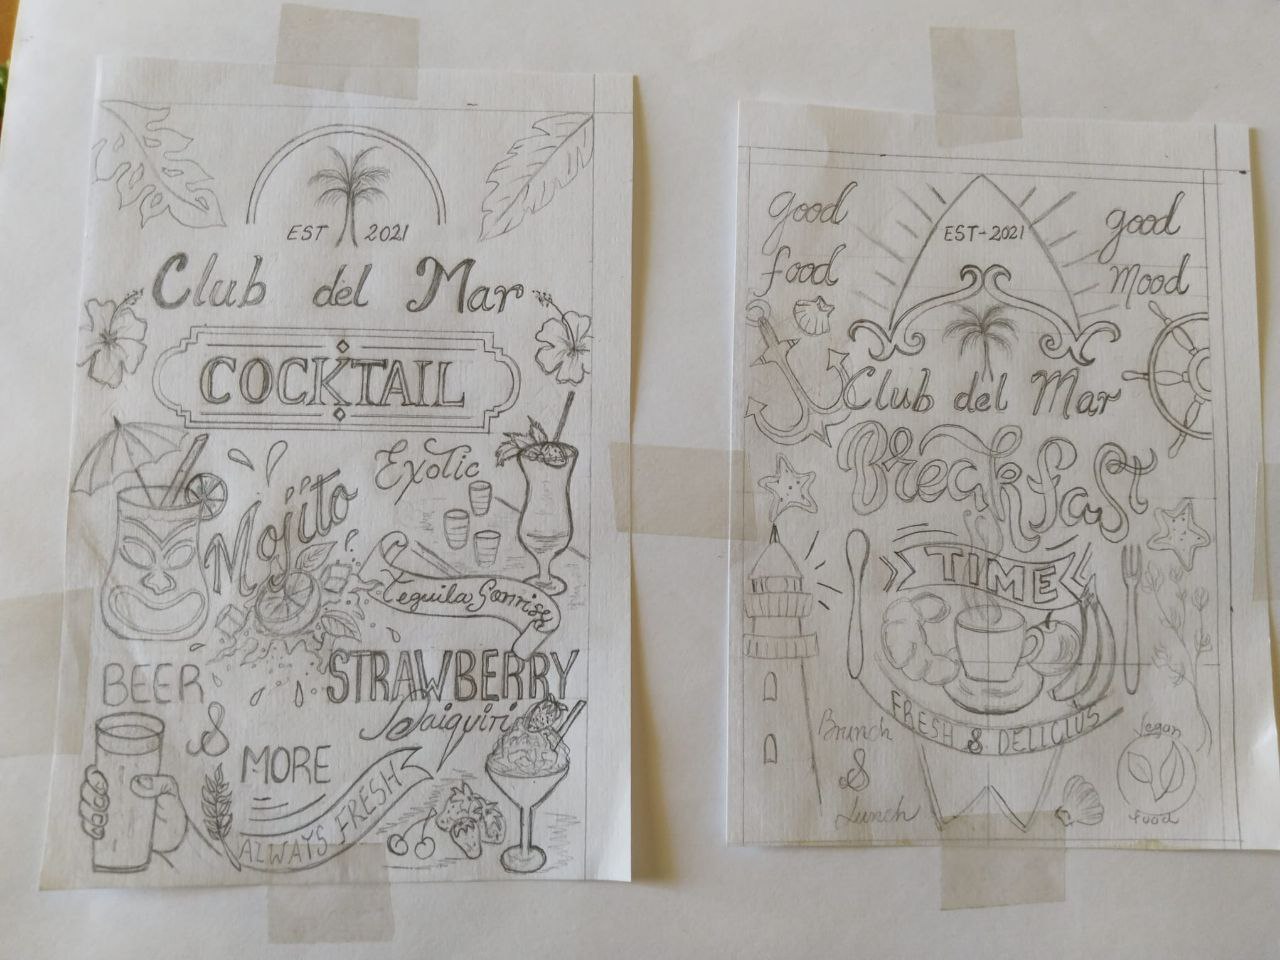 EST 2021
Club del Mar
COCKTAIL
Exotic
Mojito
Tequila Sonrise
BEER
&
MORE
STRAWBERRY
Daiquiri
ALWAYS FRESH
good
food
good
Mood
EST-2021
Club del Mar
Breakfast
TIME
FRESH & DELICIUS
Brunch
&
Lunch
Vegan
food